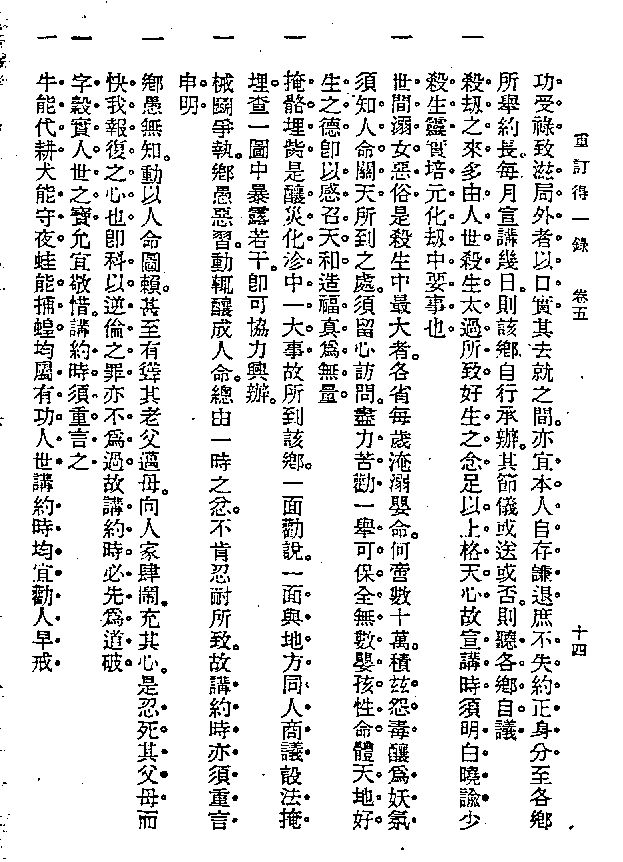 重訂得一錄　卷五　十四
功受祿致滋局外者以口實其去就之間亦宜本人自存謙退庶不失約正身分至各鄉
所舉約長每月宣講幾日則該鄉自行承辦其節儀或送或否則聽各鄉自議
一　殺刼之來多由人世殺生太過所致好生之念足以上格天心故宣講時須明白曉諭少
殺生靈實培元化刼中要事也
一　世間溺女惡俗是殺生中最大者各省每歲淹溺嬰命何啻數十萬積玆怨毒釀爲妖氛
須知人命關天所到之處須留心訪問盡力苦勸一舉可保全無數嬰孩性命體天地好
生之德卽以感召天和造福眞爲無量
一　掩骼埋胔是釀災化沴中一大事故所到該鄉一面勸說一面與地方同人商議設法掩
埋查一圖中暴露若干卽可協力興辦
一　械鬭爭執鄉愚惡習動輒釀成人命總由一時之忿不肯忍耐所致故講約時亦須重言
申明
一　鄉愚無知動以人命圖賴甚至有聳其老父逼母向人家肆鬧充其心是忍死其父母而
快我報復之心也卽科以逆倫之罪亦不爲過故講約時必先爲道破
一　字穀實人世之寶允宜敬惜講約時須重言之
一　牛能代耕犬能守夜蛙能捕蝗均屬有功人世講約時均宜勸人早戒